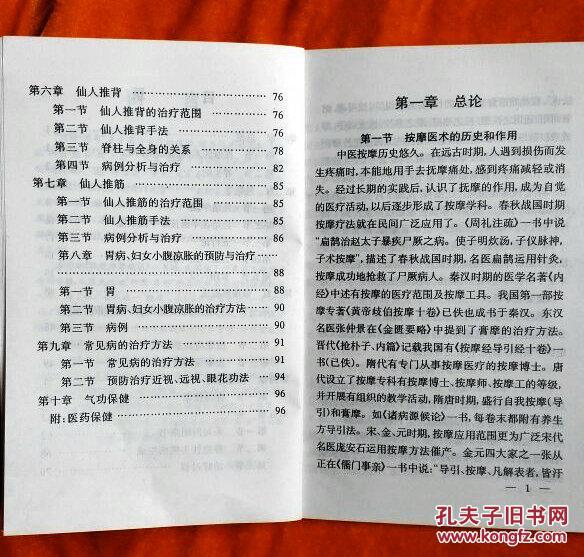 第六章 仙人推背 ………………………… 76
第一节 仙人推背的治疗范围 ………… 76
第二节 仙人推背手法 ………………… 76
第三节 脊柱与全身的关系 …………… 78
第四节 病例分析与治疗 ……………… 82
第七章 仙人推筋 ………………………… 85
第一节 仙人推筋的治疗范围 ………… 85
第二节 仙人推筋手法 ………………… 85
第三节 病例分析与治疗 ……………… 86
第八章 胃病、妇女小腹凉胀的预防与治疗……
………………………………………… 88
第一节 胃 ……………………………… 88
第二节 胃病、妇女小腹凉胀的治疗方法 90
第三节 病例 …………………………… 90
第九章 常见病的治疗方法 ……………… 91
第一节 常见病的治疗方法 …………… 91
第二节 预防治疗近视、远视、眼花功法 … 94
第十章 气功保健 ………………………… 96
附:医药保健 …………………………… 96
第一章 总论
第一节 按摩医术的历史和作用
中医按摩历史悠久。在远古时期,人遇到损伤而发
生疼痛时,本能地用手去抚摩痛处,感到疼痛减轻或消
失。经过长期的实践后,认识了抚摩的作用,成为自觉
的医疗活动,以后逐步形成了按摩学科。春秋战国时期
按摩疗法就在民间广泛应用了。《周礼注疏》一书中说
“扁鹊治赵太子暴疾尸厥之病。使子明炊汤,子仪脉神,
子术按摩”,描述了春秋战国时期,名医扁鹊运用针灸、
按摩成功地抢救了尸厥病人。秦汉时期的医学名著《内
经》中述有按摩的医疗范围及按摩工具。我国第一部按
摩专著《黄帝歧伯按摩十卷》已佚也成书于秦汉。东汉
名医张仲景在《金匮要略》中提到了膏摩的治疗方法。
晋代《抢朴子、内篇》记载我国有《按摩经导引经十卷》一
书(已佚)。隋代有专门从事按摩医疗的按摩博士。唐
代设立了按摩专科有按摩博士、按摩师、按摩工的等级,
并开展有组织的教学活动,隋唐时期,盛行自我按摩(导
引)和膏摩。如《诸病源候论》一书,每卷末都附有养生
方导引法。宋、金、元时期,按摩应用范围更为广泛宋代
名医庞安石运用按摩方法催产。金元四大家之一张从
正在《儒门事亲》一书中说:“导引、按摩、凡解表者,皆汗
— 1 —
孔夫子旧书网
www.kongfz.com